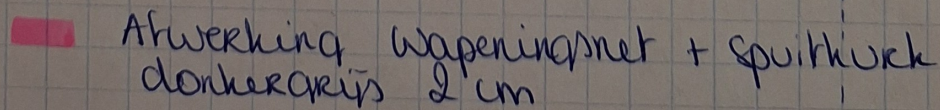 Afwerking wapeningsnet + spuitkurk
donkergrijs 2 cm